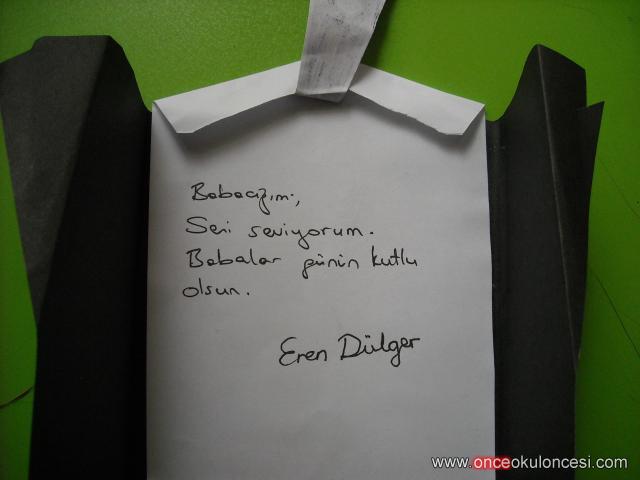 Babacığım,
Seni seviyorum.
Babalar günün kutlu
olsun.
Eren Dülger
www.onceokuloncesi.com